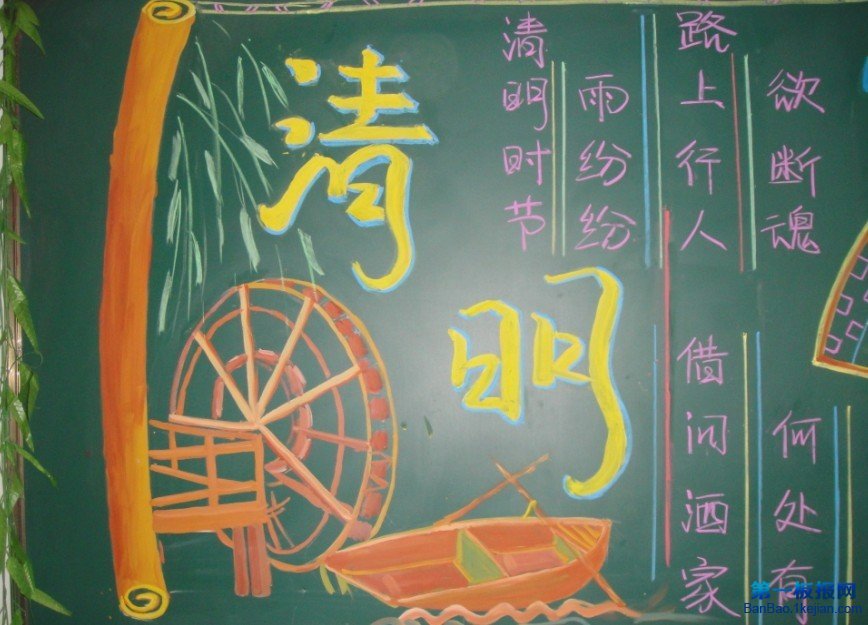 清明
清明时节
雨纷纷
路上行人
欲断魂
借问酒家
何处有
第一板报网
BanBao.1kejian.com